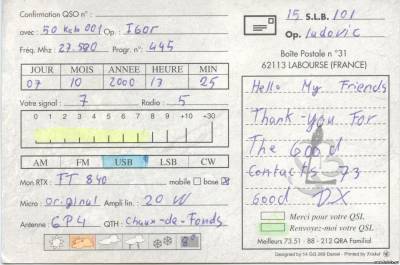 Confirmation QSO n° :
avec : 50 Kab 001 Op. : Igor
Fréq. Mhz : 27.590 Progr. n° : 445
JOUR MOIS ANNEE HEURE MIN
07 10 2000 17 25
Votre signal : 7 Radio : 5
0 1 2 3 4 5 6 7 8 9 +10 +30
AM FM USB LSB CW
Mon RTX : FT 840 mobile base
Micro : original Ampli lin. 20 W
Antenne GP4 QTH : Chaux-de-Fonds
15 S.L.B. 101
Op. Ludovic
Boîte Postale n° 31
62113 LABOURSE (FRANCE)
Hello My Friends
Thank-you For
The Good
Contacts 73
Good DX
Merci pour votre QSL
Renvoyez-moi votre QSL
Meilleurs 73.51 - 88 - 212 QRA Familial